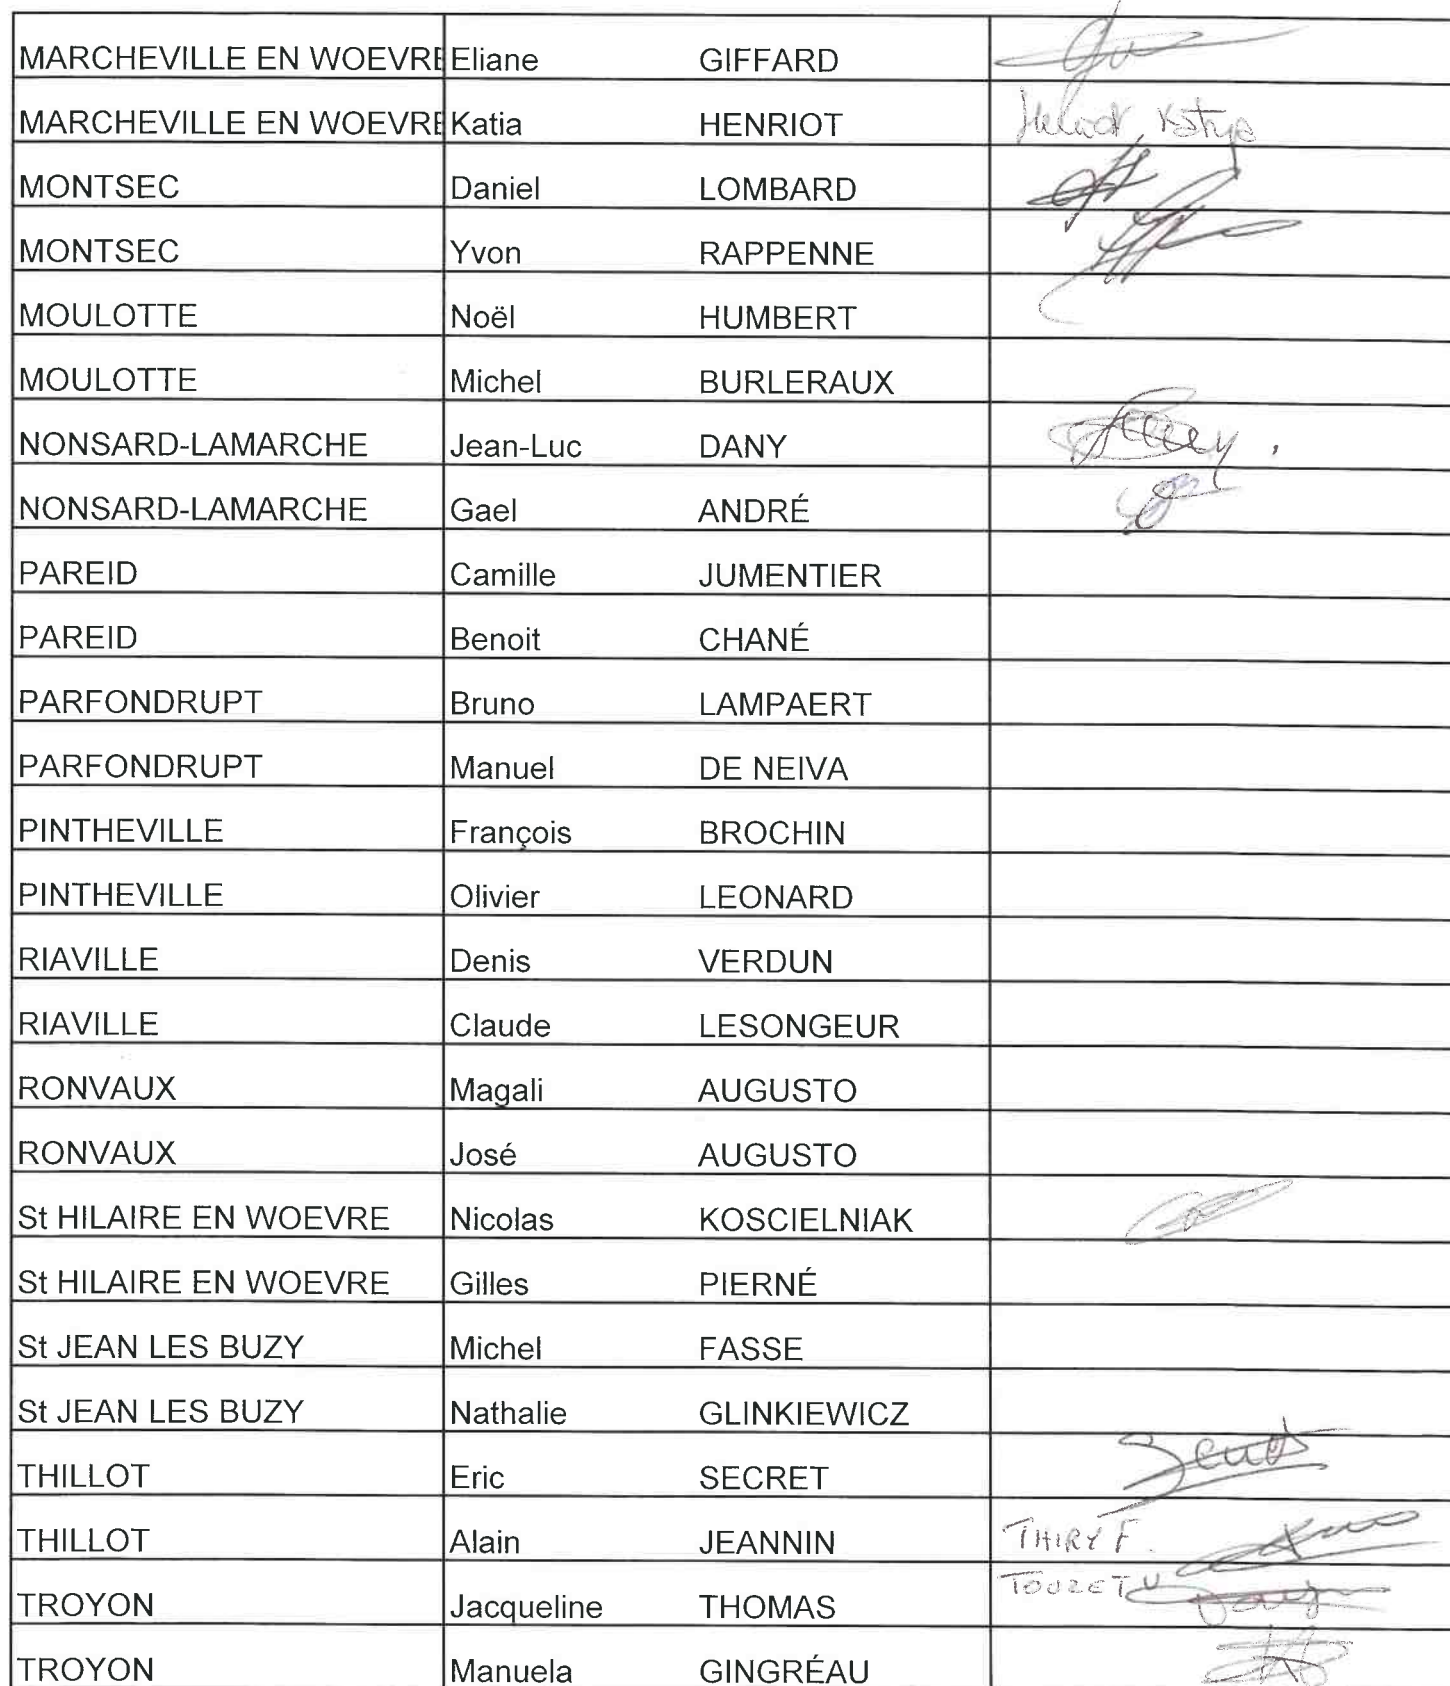 MARCHEVILLE EN WOEVRE Eliane GIFFARD
MARCHEVILLE EN WOEVRE Katia HENRIOT Katya
MONTSEC Daniel LOMBARD
MONTSEC Yvon RAPPENNE
MOULOTTE Noël HUMBERT
MOULOTTE Michel BURLERAUX
NONSARD-LAMARCHE Jean-Luc DANY
NONSARD-LAMARCHE Gael ANDRÉ
PAREID Camille JUMENTIER
PAREID Benoit CHANÉ
PARFONDRUPT Bruno LAMPAERT
PARFONDRUPT Manuel DE NEIVA
PINTHEVILLE François BROCHIN
PINTHEVILLE Olivier LEONARD
RIAVILLE Denis VERDUN
RIAVILLE Claude LESONGEUR
RONVAUX Magali AUGUSTO
RONVAUX José AUGUSTO
St HILAIRE EN WOEVRE Nicolas KOSCIELNIAK
St HILAIRE EN WOEVRE Gilles PIERNÉ
St JEAN LES BUZY Michel FASSE
St JEAN LES BUZY Nathalie GLINKIEWICZ
THILLOT Eric SECRET
THILLOT Alain JEANNIN THIRY F.
TROYON Jacqueline THOMAS TOUZET
TROYON Manuela GINGRÉAU